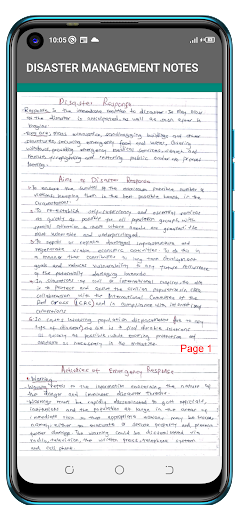 10:05
DISASTER MANAGEMENT NOTES
Disaster Response
Response is the immediate reaction to disaster. It may occur
as the disaster is anticipated, as well as soon after it
begins.
Aims of Disaster Response
victims, keeping them in the best possible health in the
circumstances.
2. To re-establish self-sufficiency and essential services
as quickly as possible for all population groups, with
special attention to those whose needs are greatest: the
most vulnerable and underprivileged.
3. To repair or replace damaged infrastructure and
regenerate viable economic activities. To do this in
a manner that contributes to long term development
goals and reduces vulnerability to any future recurrence
of potentially damaging hazards.
4. In situations of civil or international conflict, the aim
is to protect and assist the civilian population, in close
collaboration with the International Committee of the
Red Cross (ICRC) and in compliance with international
conventions.
5. In cases involving population displacements (due to any
type of disaster) the aim is to find durable solutions
as quickly as possible, while ensuring protection and
assistance as necessary in the meantime.
Page 1
Activities of Emergency Response
Warning
Warning refers to the information concerning the nature of
the danger and imminent disaster threats.
Warnings must be rapidly disseminated to government officials,
institutions and the population at large in the areas at
immediate risk so that appropriate actions may be taken,
namely, either to evacuate or secure property and prevent
further damage. The warning could be disseminated via
radio, television, the written press, telephone system
and cell phone.